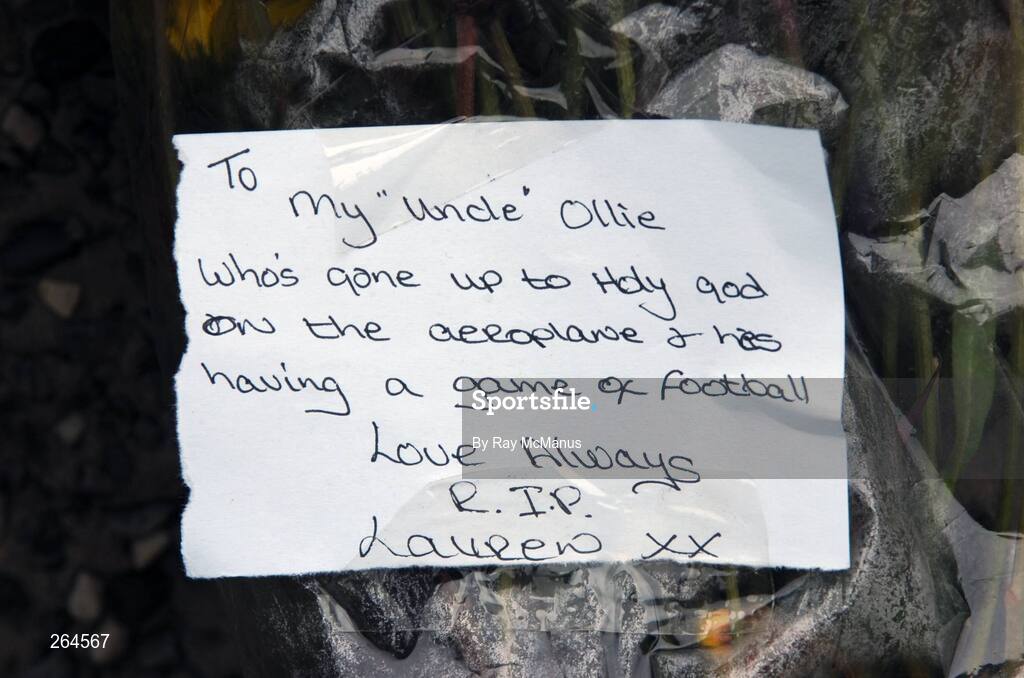 To
My "Uncle" Ollie
Who's gone up to Holy god
ON the aeroplane & hes
having a game of football
Love Always
R.I.P.
Lauren xx
Sportsfile.
By Ray McManus
264567